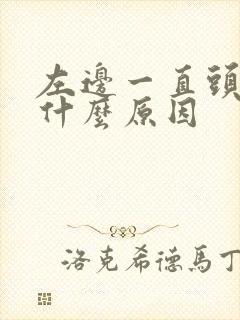 左邊一直頭
什麼原因
洛克希德馬丁